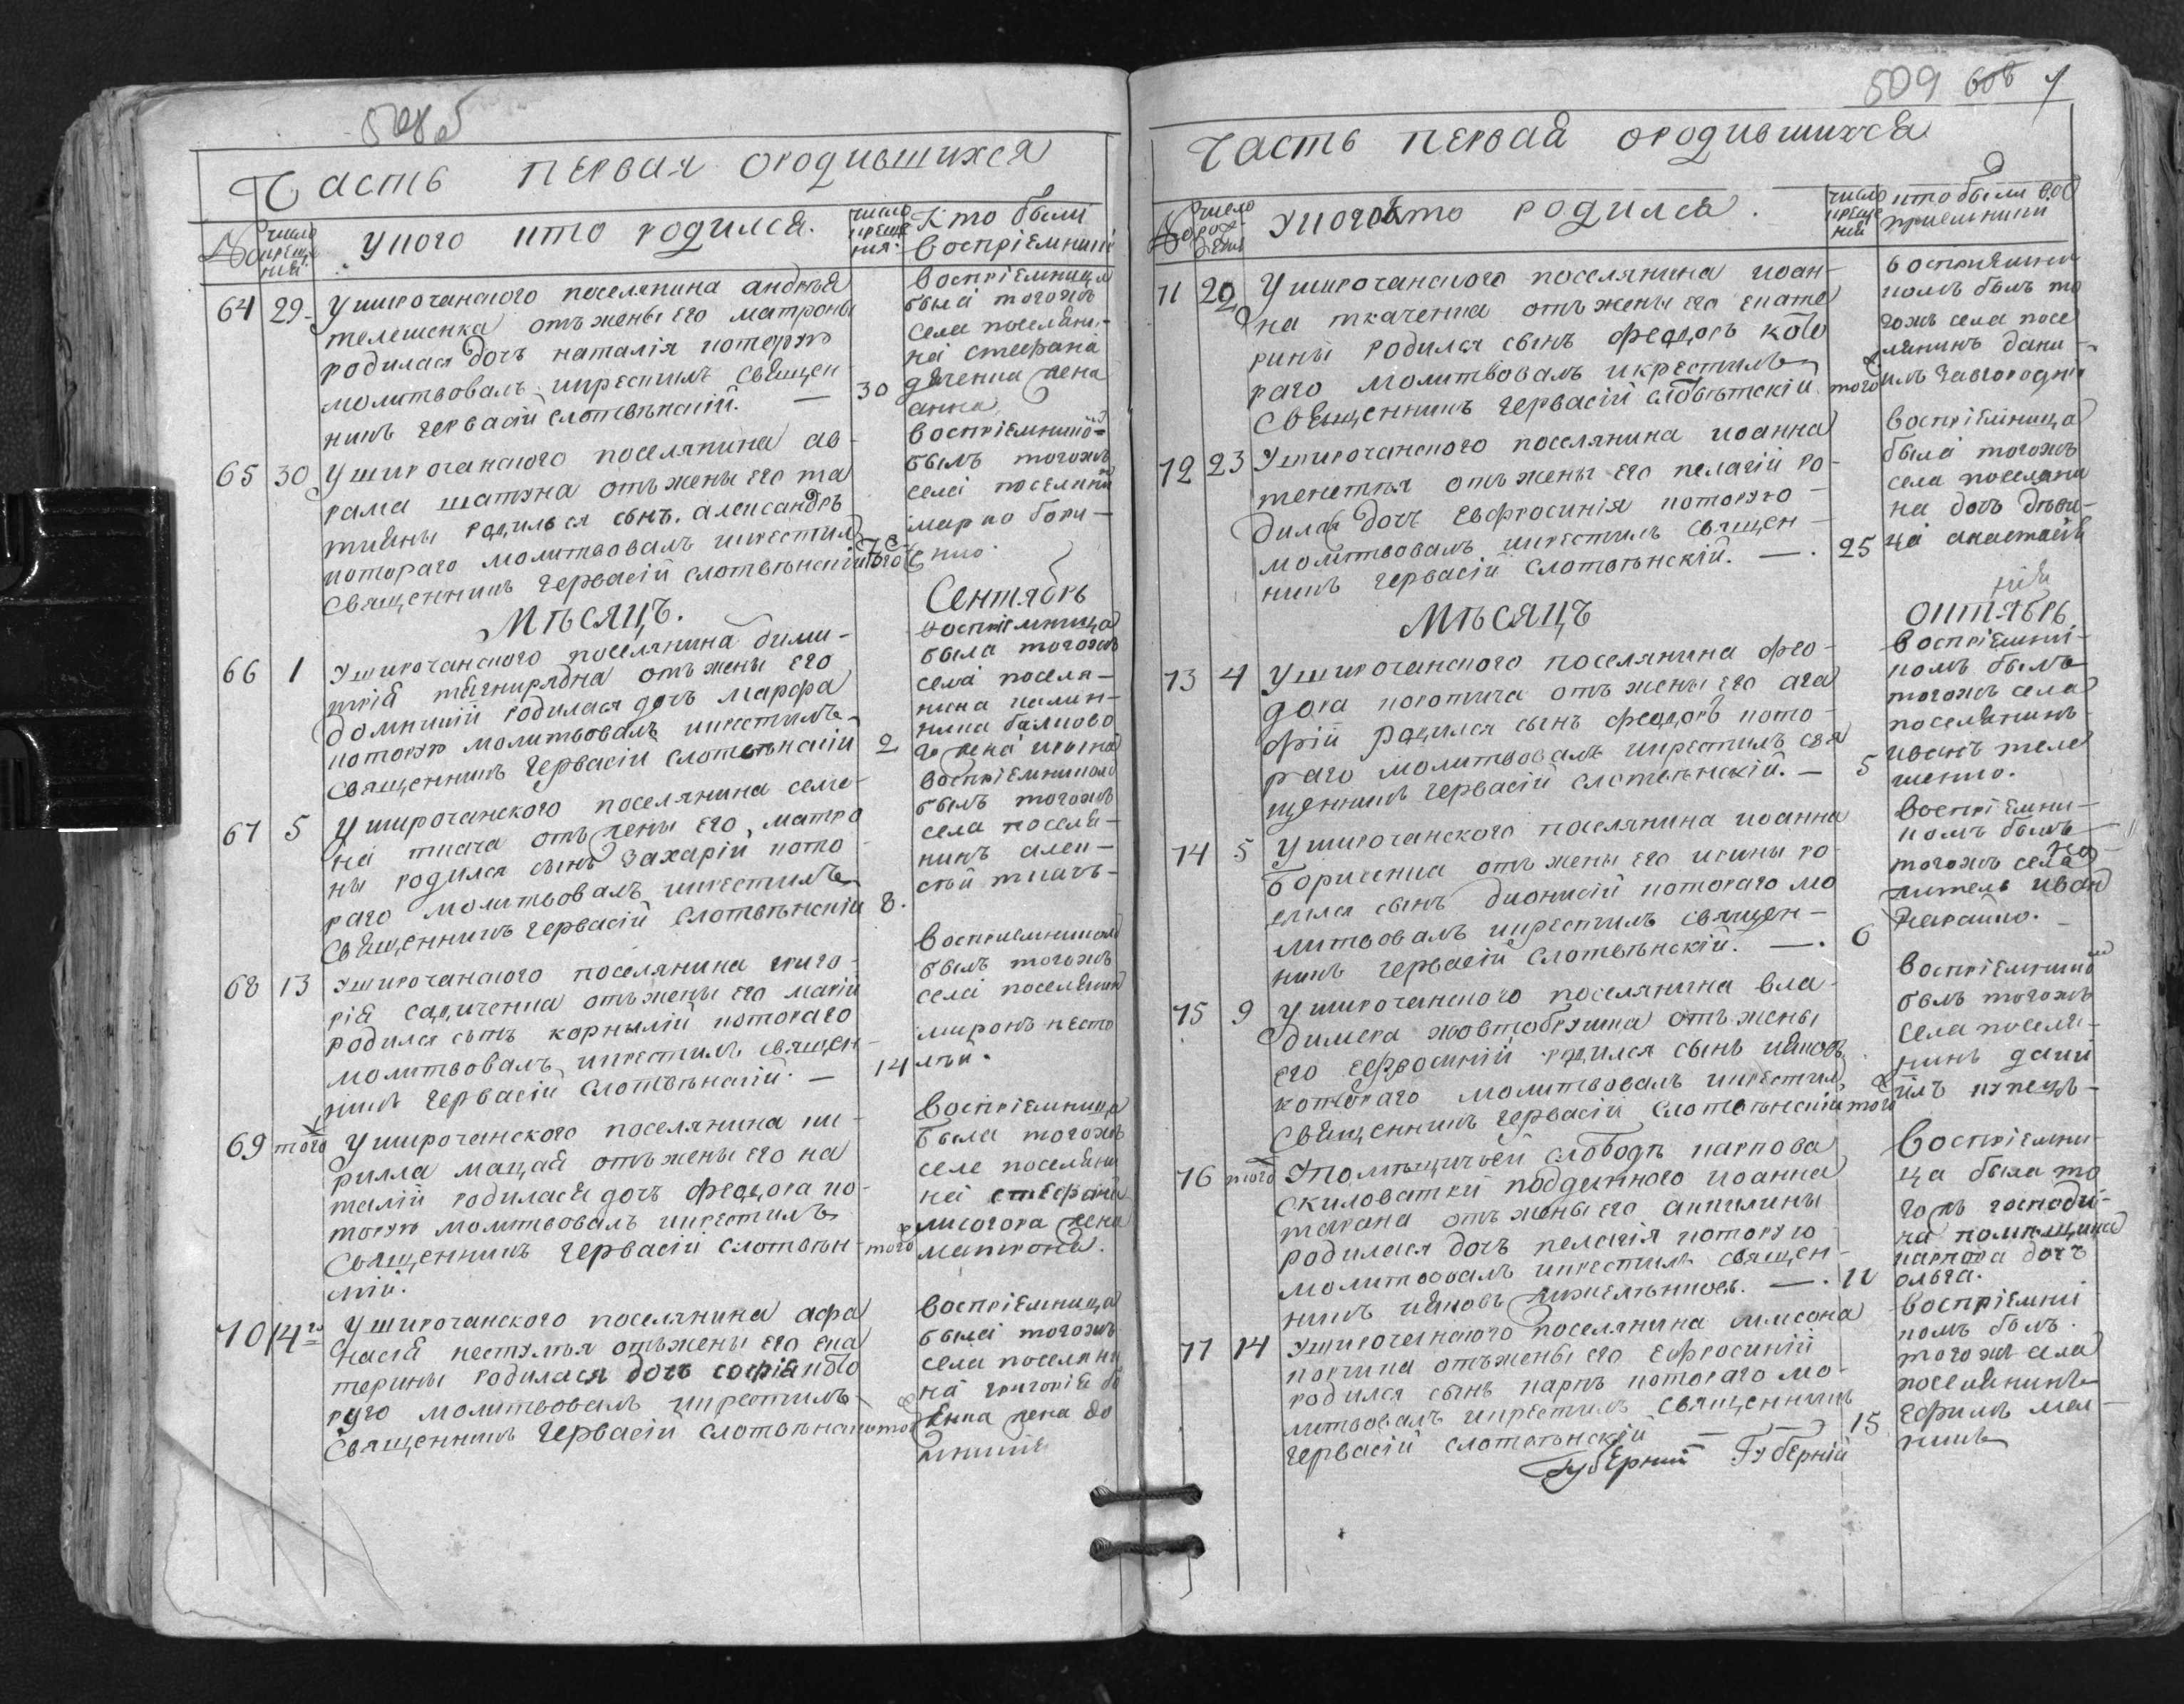 Часть первая ородившихся
№ число крещения
У кого кто родился.
число крещения
Кто были воспріемники
64 29 У широчанского поселянина андрѣя
телешенка отъ жены его матроны
родилася дочъ наталія которую
молитвовалъ икрестилъ священ-
никъ гервасій слотвѣнскій. — 30
воспріемница
была тогожъ
села поселяни-
на стефана
дяченка жена
анна
65 30 У широчанского поселянина ав-
рама шатуна отъ жены его та
тияны родилъся сынъ александръ
котораго молитвовалъ икрестил
священникъ гервасій слотвѣнскій того
воспріемнико
былъ тогожъ
села поселянин
марко бори-
сенко
Мѣсяцъ.
Сентябрь
66 1 У широчанского поселянина дими-
трія отъ жены его
домникій родилася дочъ марфа
которую молитвовалъ икрестилъ
священникъ гервасій слотвѣнскій 2
воспріемница
была тогожъ
села поселя-
нина калин-
ника
го жена ирына
67 5 У широчанского поселянина семе-
на ткача отъ жены его матро
ны родился сынъ захарій кото
раго молитвовалъ икрестилъ
священникъ гервасій слотвѣнскій 8.
воспріемником
былъ тогожъ
села поселя-
нинъ алек-
сѣй ткачъ-
68 13 У широчанского поселянина григо-
рія садиченка отъ жены его марій
родился сынъ корнылій котораго
молитвовалъ икрестилъ священ-
никъ гервасій слотвѣнскій. — 14
воспріемником
былъ тогожъ
села поселянин
миронъ несто
лѣй.
69 того У широчанского поселянина ки-
рилла мацая отъ жены его на
талій родилася дочъ феодора ко-
торую молитвовалъ икрестилъ
священникъ гервасій слотвѣн- того
скій.
воспріемница
была тогожъ
селе поселяни
на стефана
лисогора жена
матрона.
70 14го У широчанского поселянина афа
насія нестулѣя отъ жены его ека
терины родилася дочъ софія кото
руго молитвовалъ икрестилъ
священникъ гервасій слотвѣнскій того
воспріемница
была тогожъ
села поселяни
на григорія
енка жена до
мникія
509 608
Часть первая ородившихся
№ число орождения
У кого кто родился.
число крещения
кто были вос
приемники
71 22 У широчанского поселянина иоан-
на ткаченка отъ жены его екате
рины родился сынъ феодоръ кото
раго молитвовалъ икрестилъ
священникъ гервасій слотвѣнскій того
воспріемни
комъ былъ то
гожъ села посе
лянинъ дани-
илъ завгородній
72 23 У широчанского поселянина иоанна
тенетъя отъ жены его пелагій ро-
дилася дочъ евфросинія которую
молитвовалъ икрестилъ священ-
никъ гервасій слотвѣнскій. — . 25
воспріемница
была тогожъ
села поселяни
на дочъ дѣви-
ца анастасія
Мѣсяцъ
октябрь
73 4 У широчанского поселянина фео-
дора коротича отъ жены его ага
фій родился сынъ феодоръ кото-
раго молитвовалъ икрестилъ свя
щенникъ гервасій слотвѣнскій. — 5
воспріемни-
комъ былъ
тогожъ села
поселянинъ
иванъ теле
шенко.
74 5 У широчанского поселянина иоанна
борисенка отъ жены его ирины ро-
дился сынъ дионисій котораго мо
литвовалъ икрестилъ священ-
никъ гервасій слотвѣнскій. — . 6
воспріемни-
комъ былъ
тогожъ села жи
тель иван
75 9 У широчанского поселянина вла-
димера жовтобрюха отъ жены
его ефросиній родился сынъ иаковъ
котораго молитвовалъ икрестил
священникъ гервасій слотвѣнскій того
воспріемнико
былъ тогожъ
села поселя-
нинъ дани
илъ купецъ-
76 того У помѣщичьей слободѣ карпова
скиловаткѣ подданного иоанна
тарана отъ жены его акилины
родилася дочъ пелагія которую
молитвовалъ икрестилъ священ-
никъ иаковъ — . 11
воспріемни-
ца была то
гожъ господи-
на помѣщика
карпова дочъ
ольга.
77 14 У широчанского поселянина самсона
отъ жены его ефросиній
родился сынъ карпъ котораго мо-
литвовалъ икрестилъ священникъ
гервасій слотвѣнскій — 15
воспріемни
комъ былъ
тогожъ села
поселянинъ
ефимъ мел-
никъ
Губерній Губерній